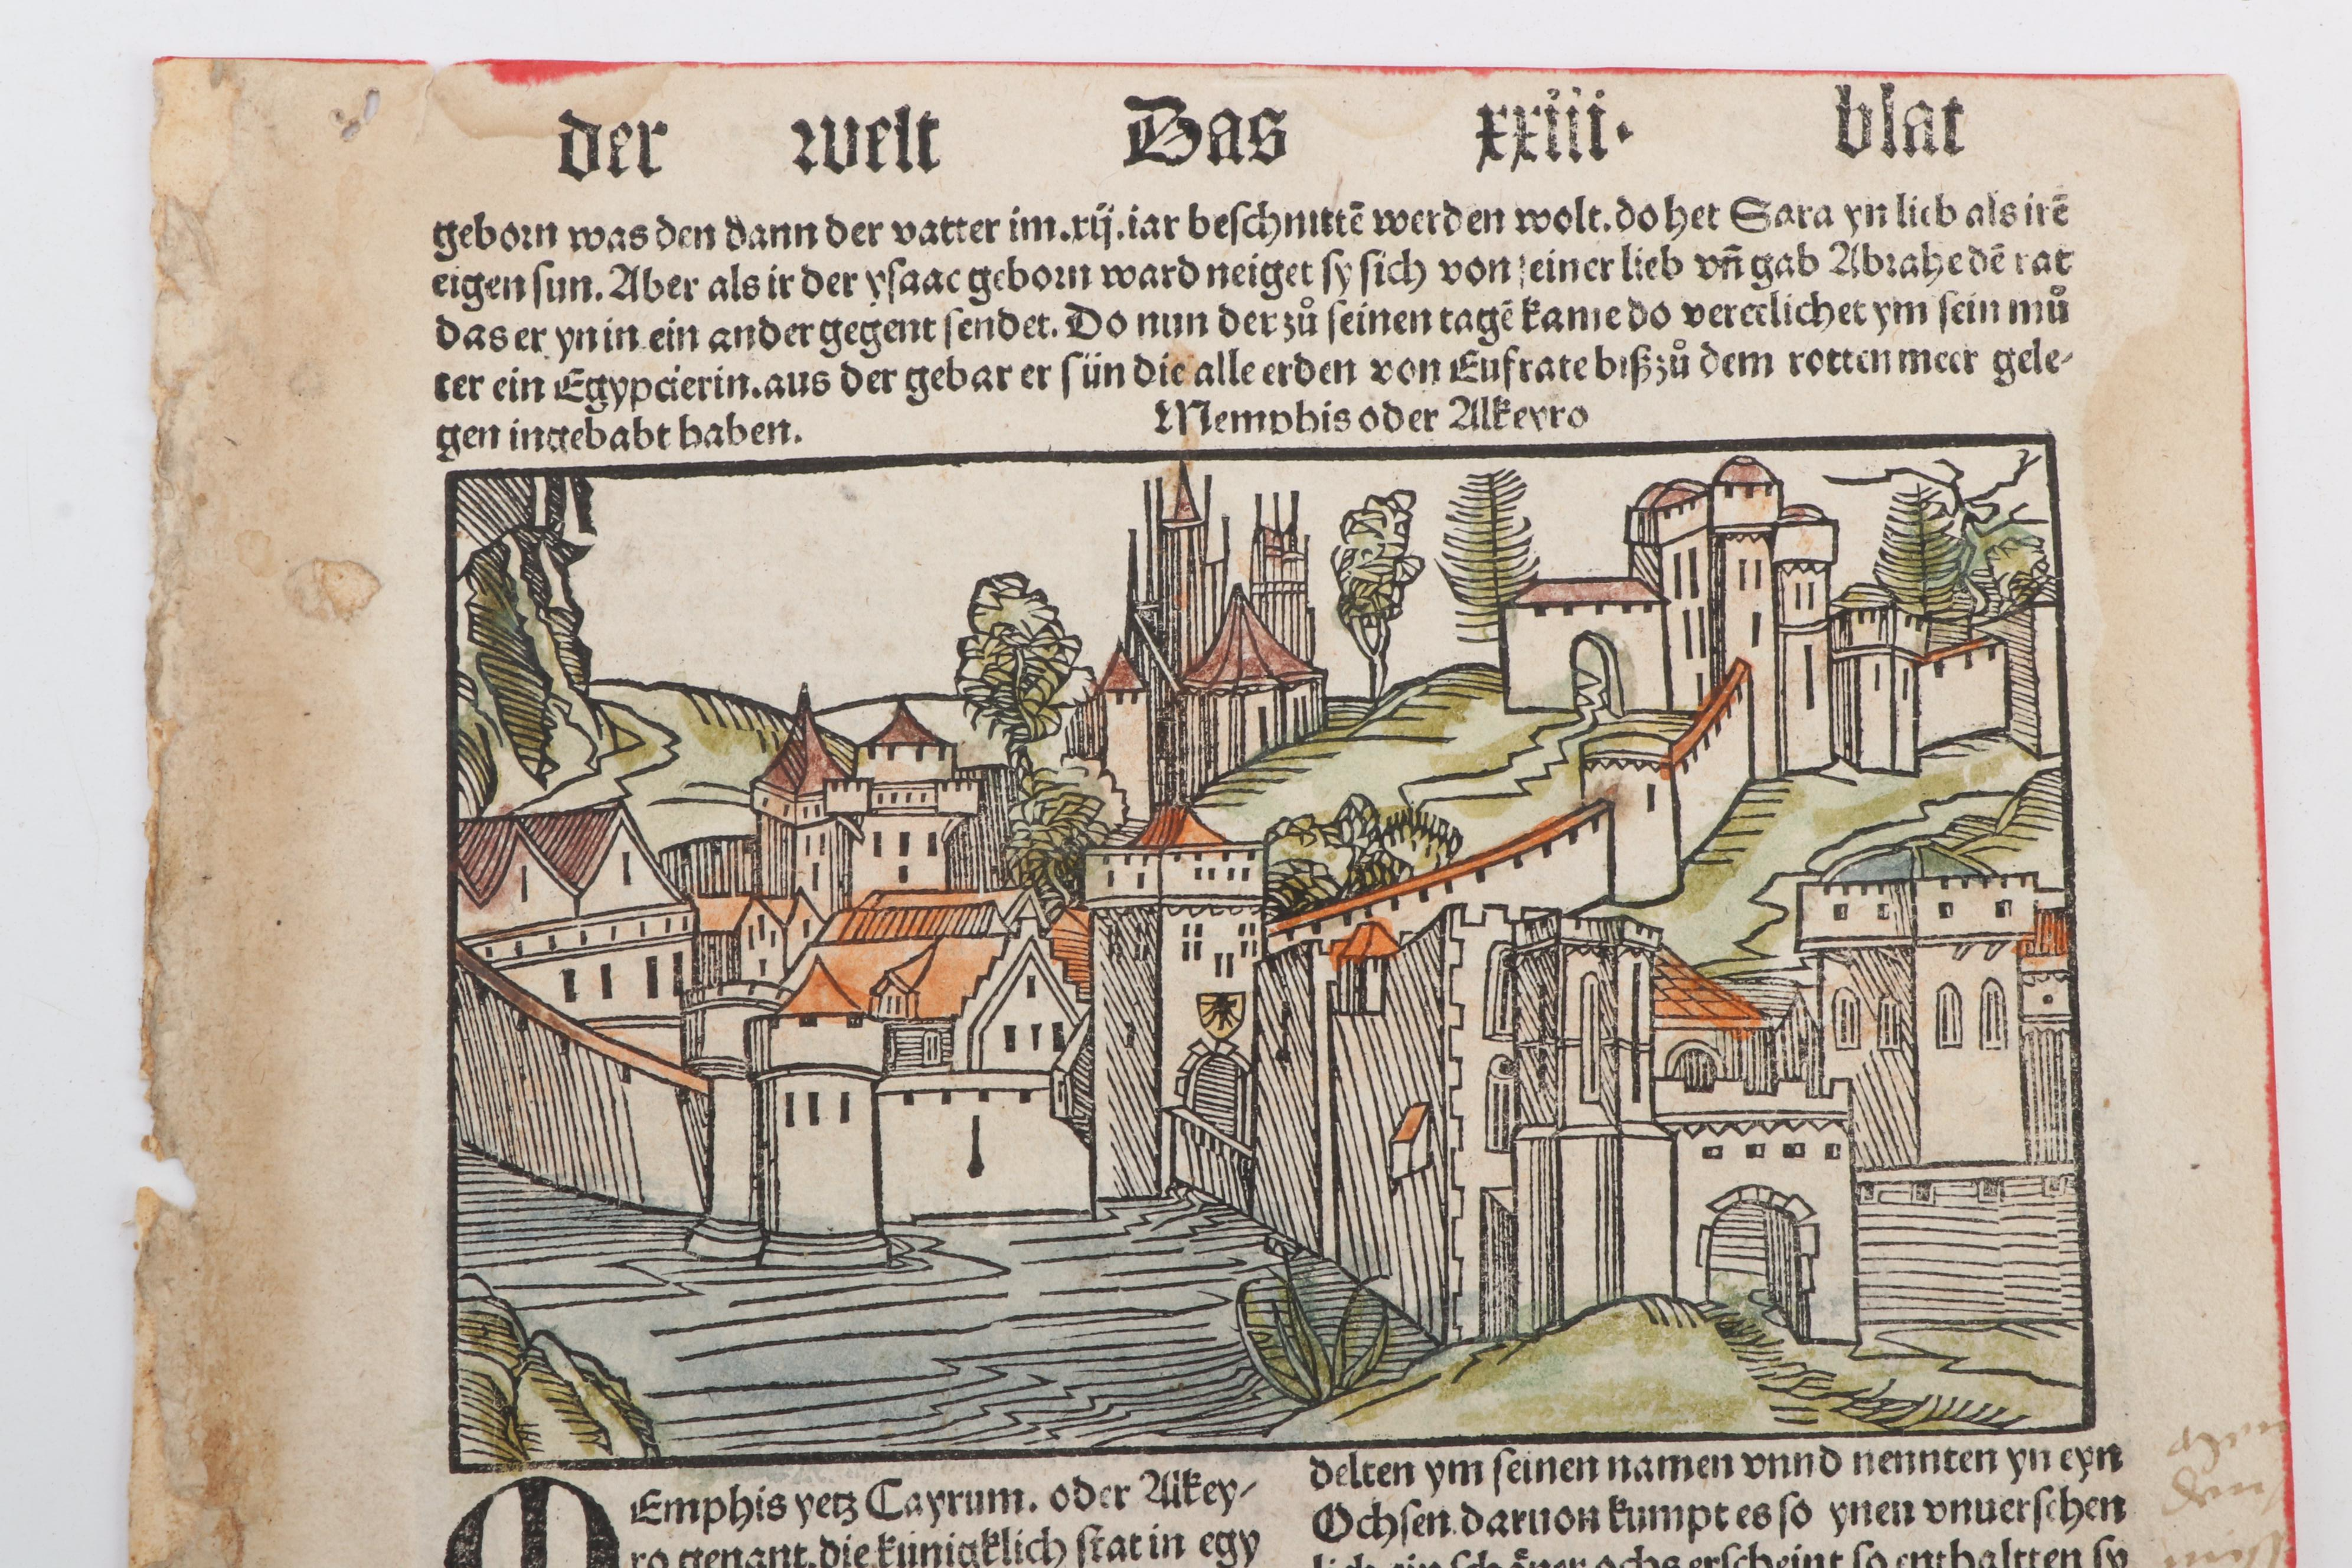 der welt Das xxiii. blat
geborn was den dann der vatter im .xij. iar beschnittē werden wolt. do het Sara yn lieb als irē
eigen sun. Aber als ir der ysaac geborn ward neiget sy sich von seiner lieb vn̄ gab Abrahe dē rat
das er yn in ein ander gegent sendet. Do nun der zů seinen tagē kame do vereelichet ym sein mů
ter ein Egypcierin. aus der gebar er sün die alle erden von Eufrate biß zů dem rotten meer gele-
gen ingehabt haben.
Memphis oder Alkeyro
MEmphis yetz Cayrum. oder Alkey-
ro genant. die künigklich stat in egy
delten ym seinen namen vnnd nennten yn eyn
Ochsen. daruon kumpt es so ynen vnuersehen
lich ein schöner ochs erscheint so enthaltten sy